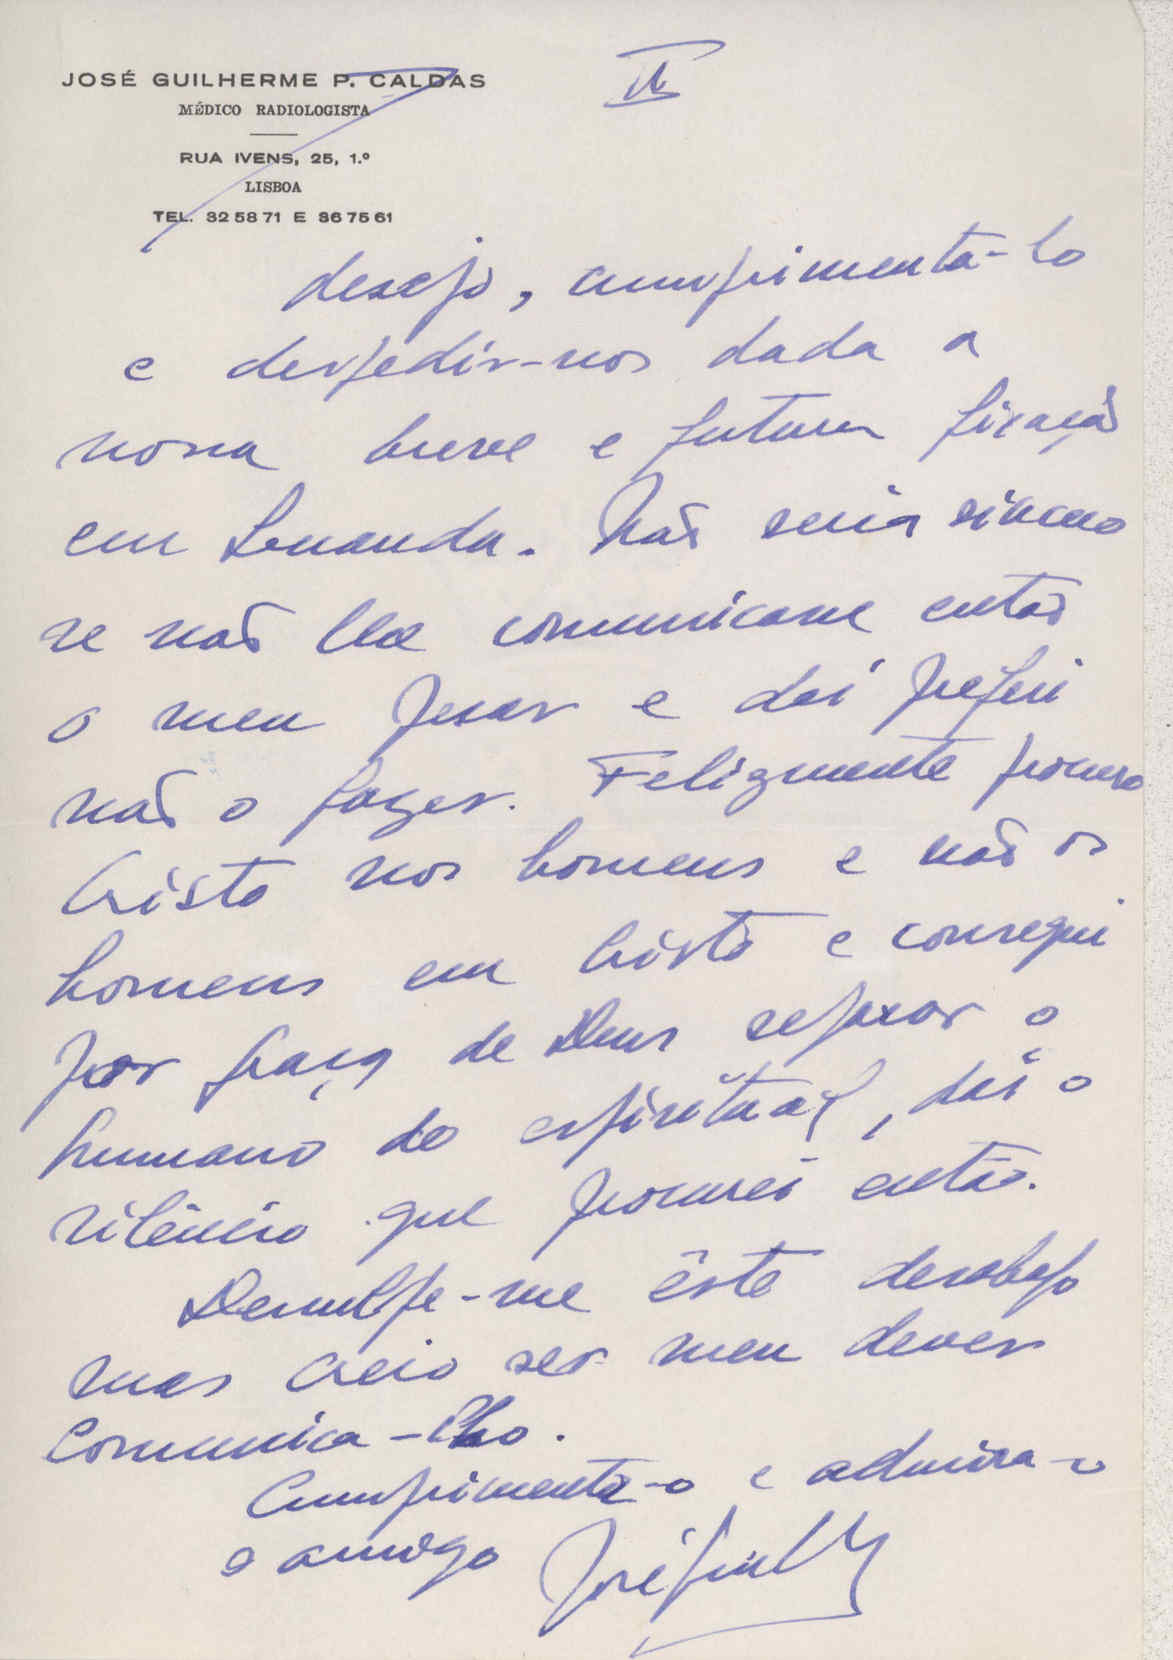 JOSÉ GUILHERME P. CALDAS
MÉDICO RADIOLOGISTA
RUA IVENS, 25, 1.º
LISBOA
TEL. 32 58 71 E 36 75 61
desejo, cumprimenta-lo
e despedir-nos dada a
nossa breve e futura fixação
em Luanda. Não seria sincero
se não lhe comunicasse então
o meu pesar e daí preferi
não o fazer. Felizmente procuro
Cristo nos homens e não os
homens em Cristo e consegui
por Graça de Deus separar o
humano do espiritual, daí o
silêncio que procurei então.
Desculpe-me êste desabafo
mas creio ser meu dever
comunica-lho.
Cumprimenta-o e admira-o
o amigo José Guilh